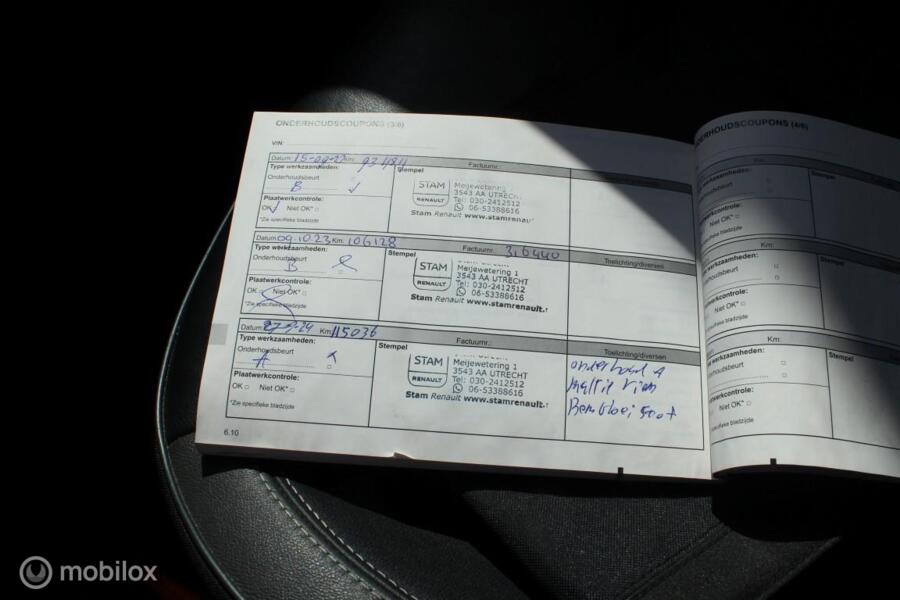 ONDERHOUDSCOUPONS (3/6)
VIN:
Datum: 15-09-22 Km: 93484 Factuurnr.:
Type werkzaamheden:
Onderhoudsbeurt
B
Plaatwerkcontrole:
OK Niet OK*
*Zie specifieke bladzijde
Stempel
STAM
RENAULT
Meijewetering 1
3543 AA UTRECHT
Tel: 030-2412512
06-53388616
Stam Renault www.stamrenault.
Datum: 09.10.23 Km: 106128 Factuurnr.: 316440 Toelichting/diversen
Type werkzaamheden:
Onderhoudsbeurt
B
Plaatwerkcontrole:
OK Niet OK*
*Zie specifieke bladzijde
Stempel
STAM
RENAULT
Meijewetering 1
3543 AA UTRECHT
Tel: 030-2412512
06-53388616
Stam Renault www.stamrenault.
Datum: Km: 115036 Factuurnr.: Toelichting/diversen
Type werkzaamheden:
Onderhoudsbeurt
A
Plaatwerkcontrole:
OK Niet OK*
*Zie specifieke bladzijde
Stempel
STAM
RENAULT
Meijewetering 1
3543 AA UTRECHT
Tel: 030-2412512
06-53388616
Stam Renault www.stamrenault.
6.10
ONDERHOUDSCOUPONS (4/6)
werkzaamheden:
Km:
werkzaamheden:
Onderhoudsbeurt
Plaatwerkcontrole:
Niet OK*
specifieke bladzijde
Stempel
Km:
werkzaamheden:
Onderhoudsbeurt
Plaatwerkcontrole:
Niet OK*
specifieke bladzijde
Stempel
mobilox